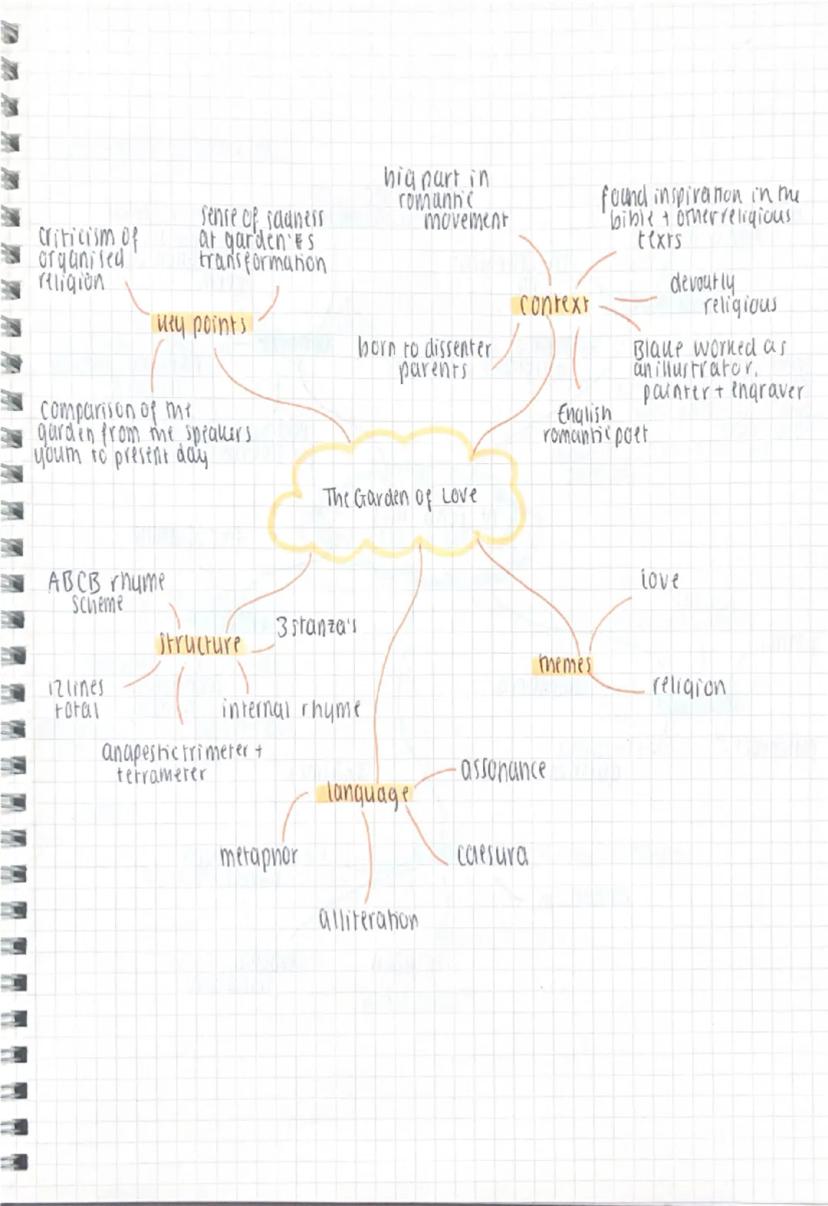 The Garden of Love
key points
criticism of
organised
religion
sense of sadness
at garden's
transformation
comparison of the
garden from the speakers
youth to present day
context
big part in
romantic
movement
found inspiration in the
bible + other religious
texts
devoutly
religious
Blake worked as
an illustrator,
painter + engraver
English
romantic poet
born to dissenter
parents
structure
ABCB rhyme
scheme
3 stanza's
internal rhyme
anapestic trimeter +
tetrameter
12 lines
total
themes
love
religion
language
assonance
caesura
alliteration
metaphor